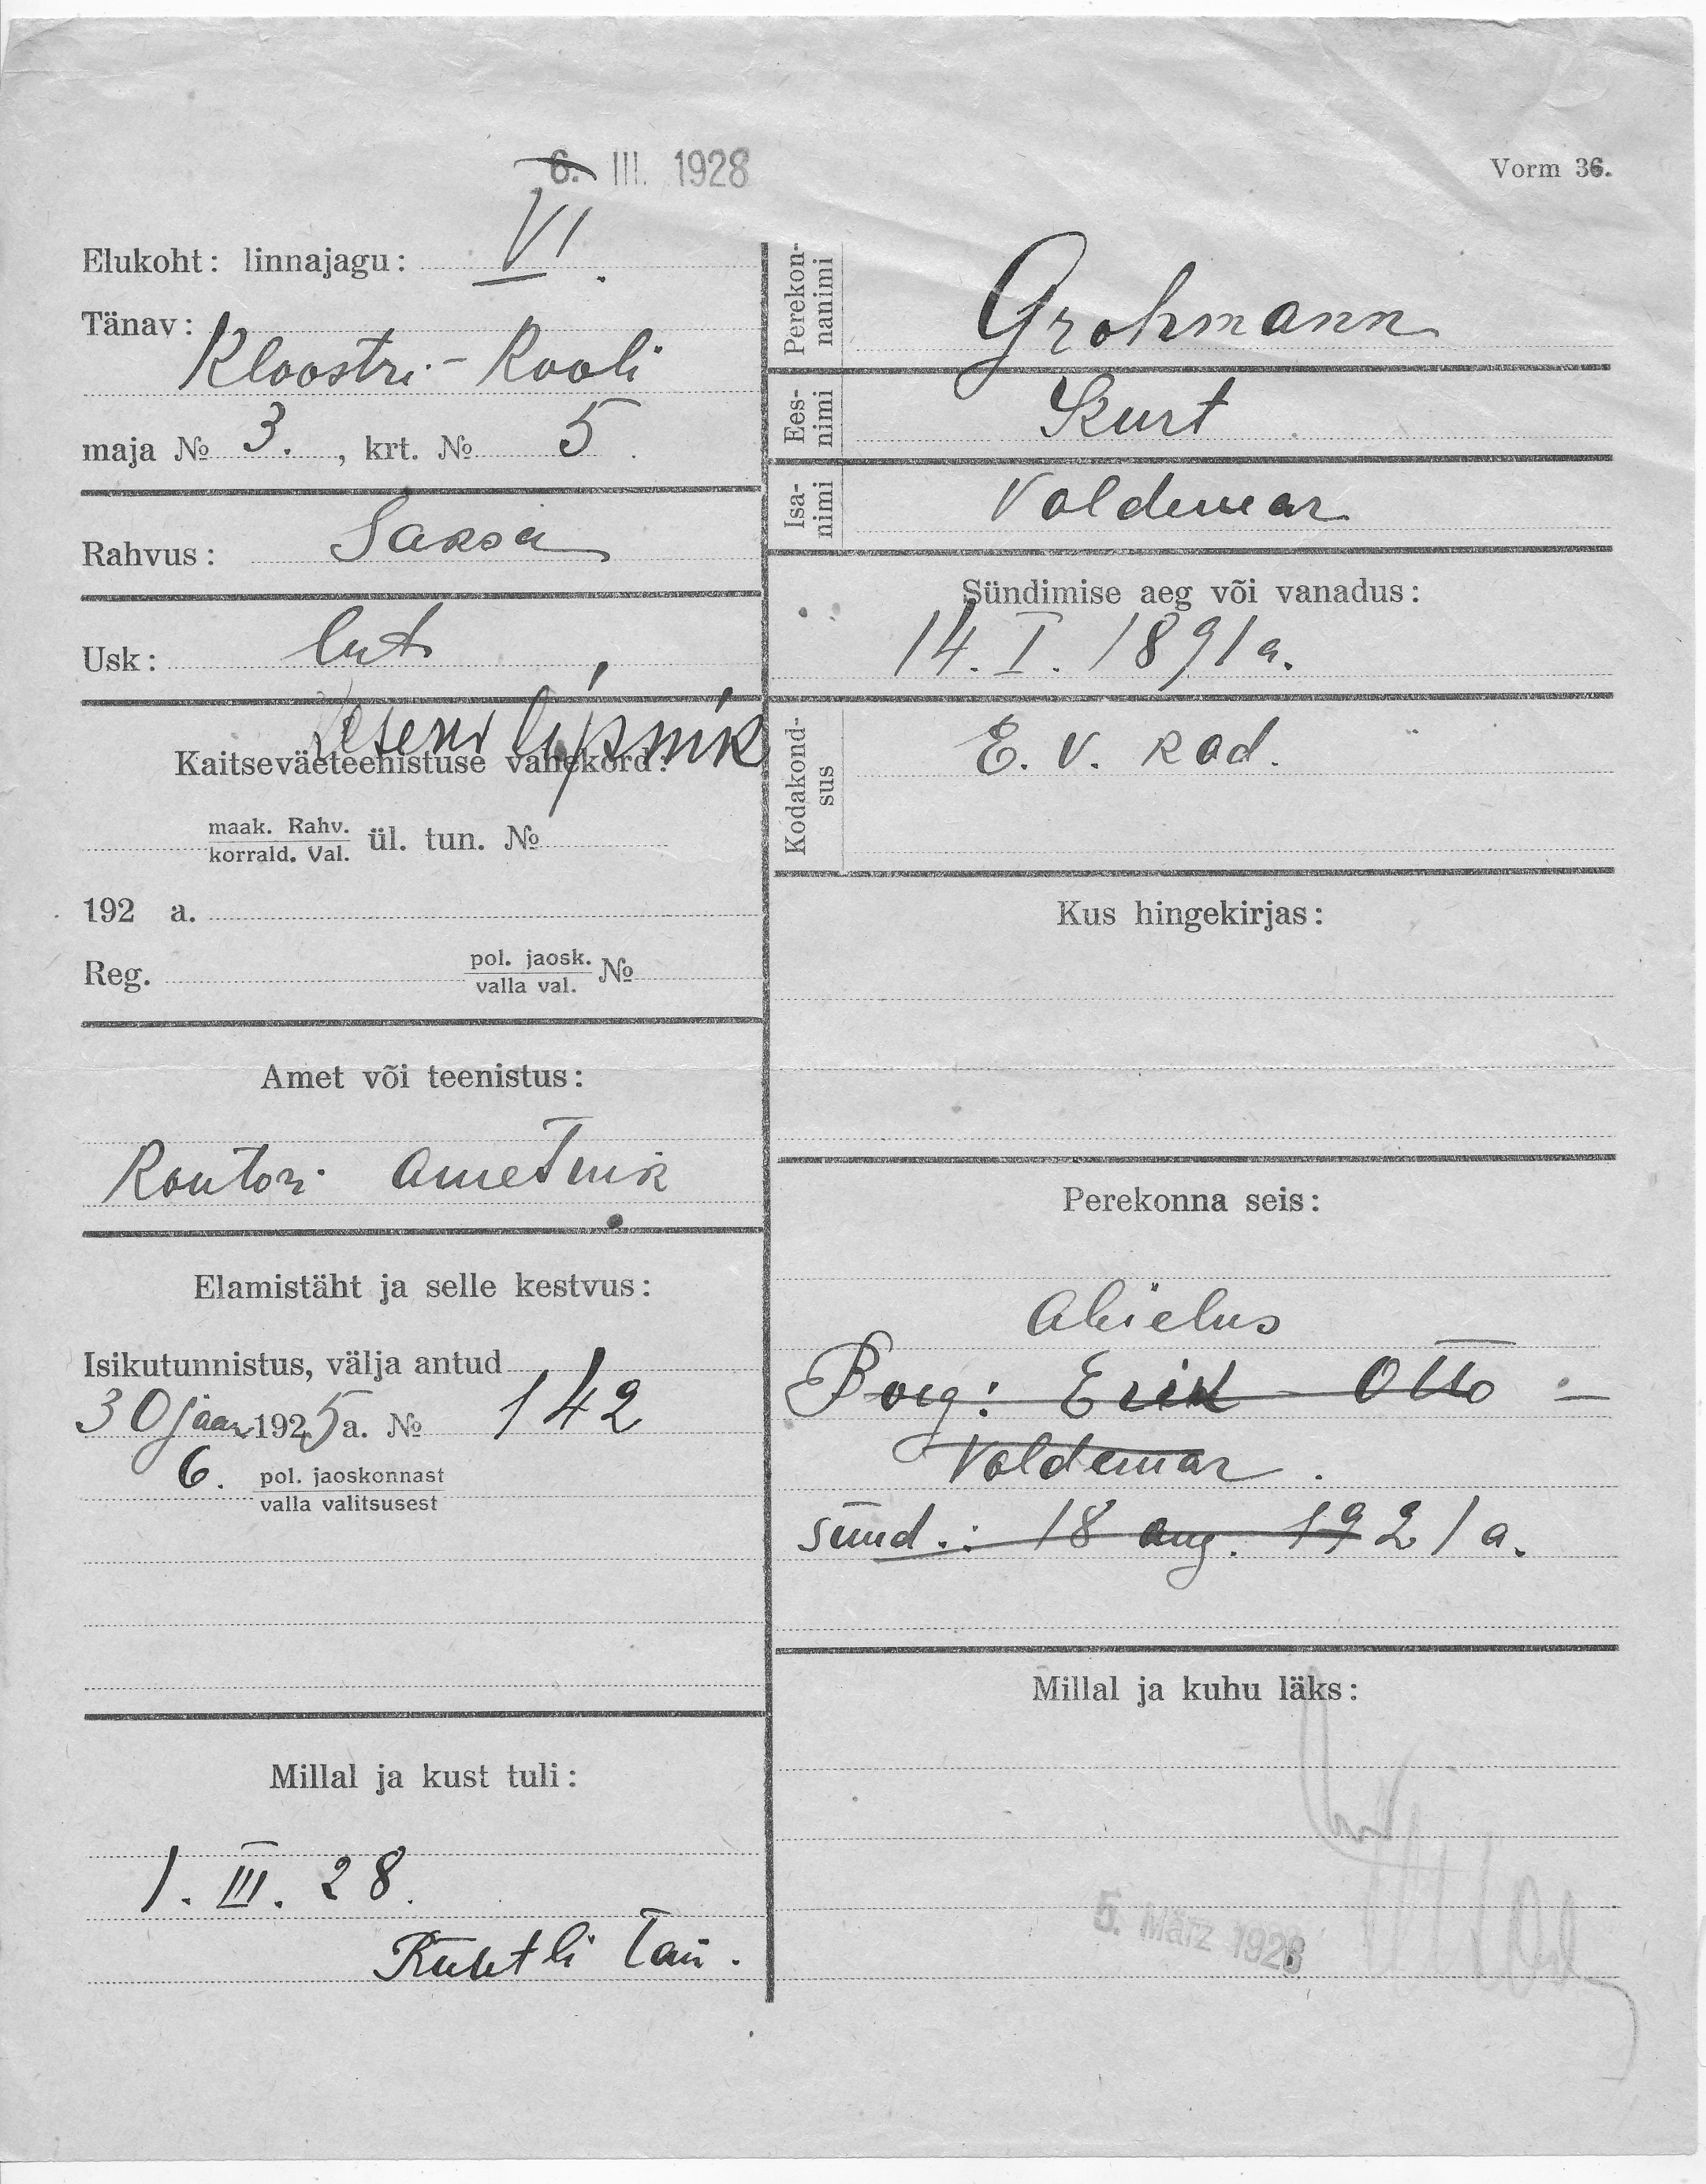 6. III. 1928
Vorm 36.
Elukoht: linnajagu: VI.
Tänav:
Kloostri-Kooli
maja № 3., krt. № 5.
Rahvus: Saksa
Usk: lut
reserv lipnik
Kaitseväeteenistuse vahekord:
maak. Rahv.
korrald. Val. ül. tun. №
192 a.
Reg. pol. jaosk.
valla val. №
Amet või teenistus:
Kontori ametnik
Elamistäht ja selle kestvus:
Isikutunnistus, välja antud
30 jaan 1925 a. № 142
6. pol. jaoskonnast
valla valitsusest
Millal ja kust tuli:
1. III. 28.
tän.
Perekon-
nanimi Grohmann
Ees-
nimi Kurt
Isa-
nimi Voldemar
Sündimise aeg või vanadus:
14. I. 1891 a.
Kodakond-
sus E. V. kod.
Kus hingekirjas:
Perekonna seis:
Abielus
Poeg: Erik Otto -
Voldemar.
sünd.: 18 aug. 1921 a.
Millal ja kuhu läks:
5. März 1928